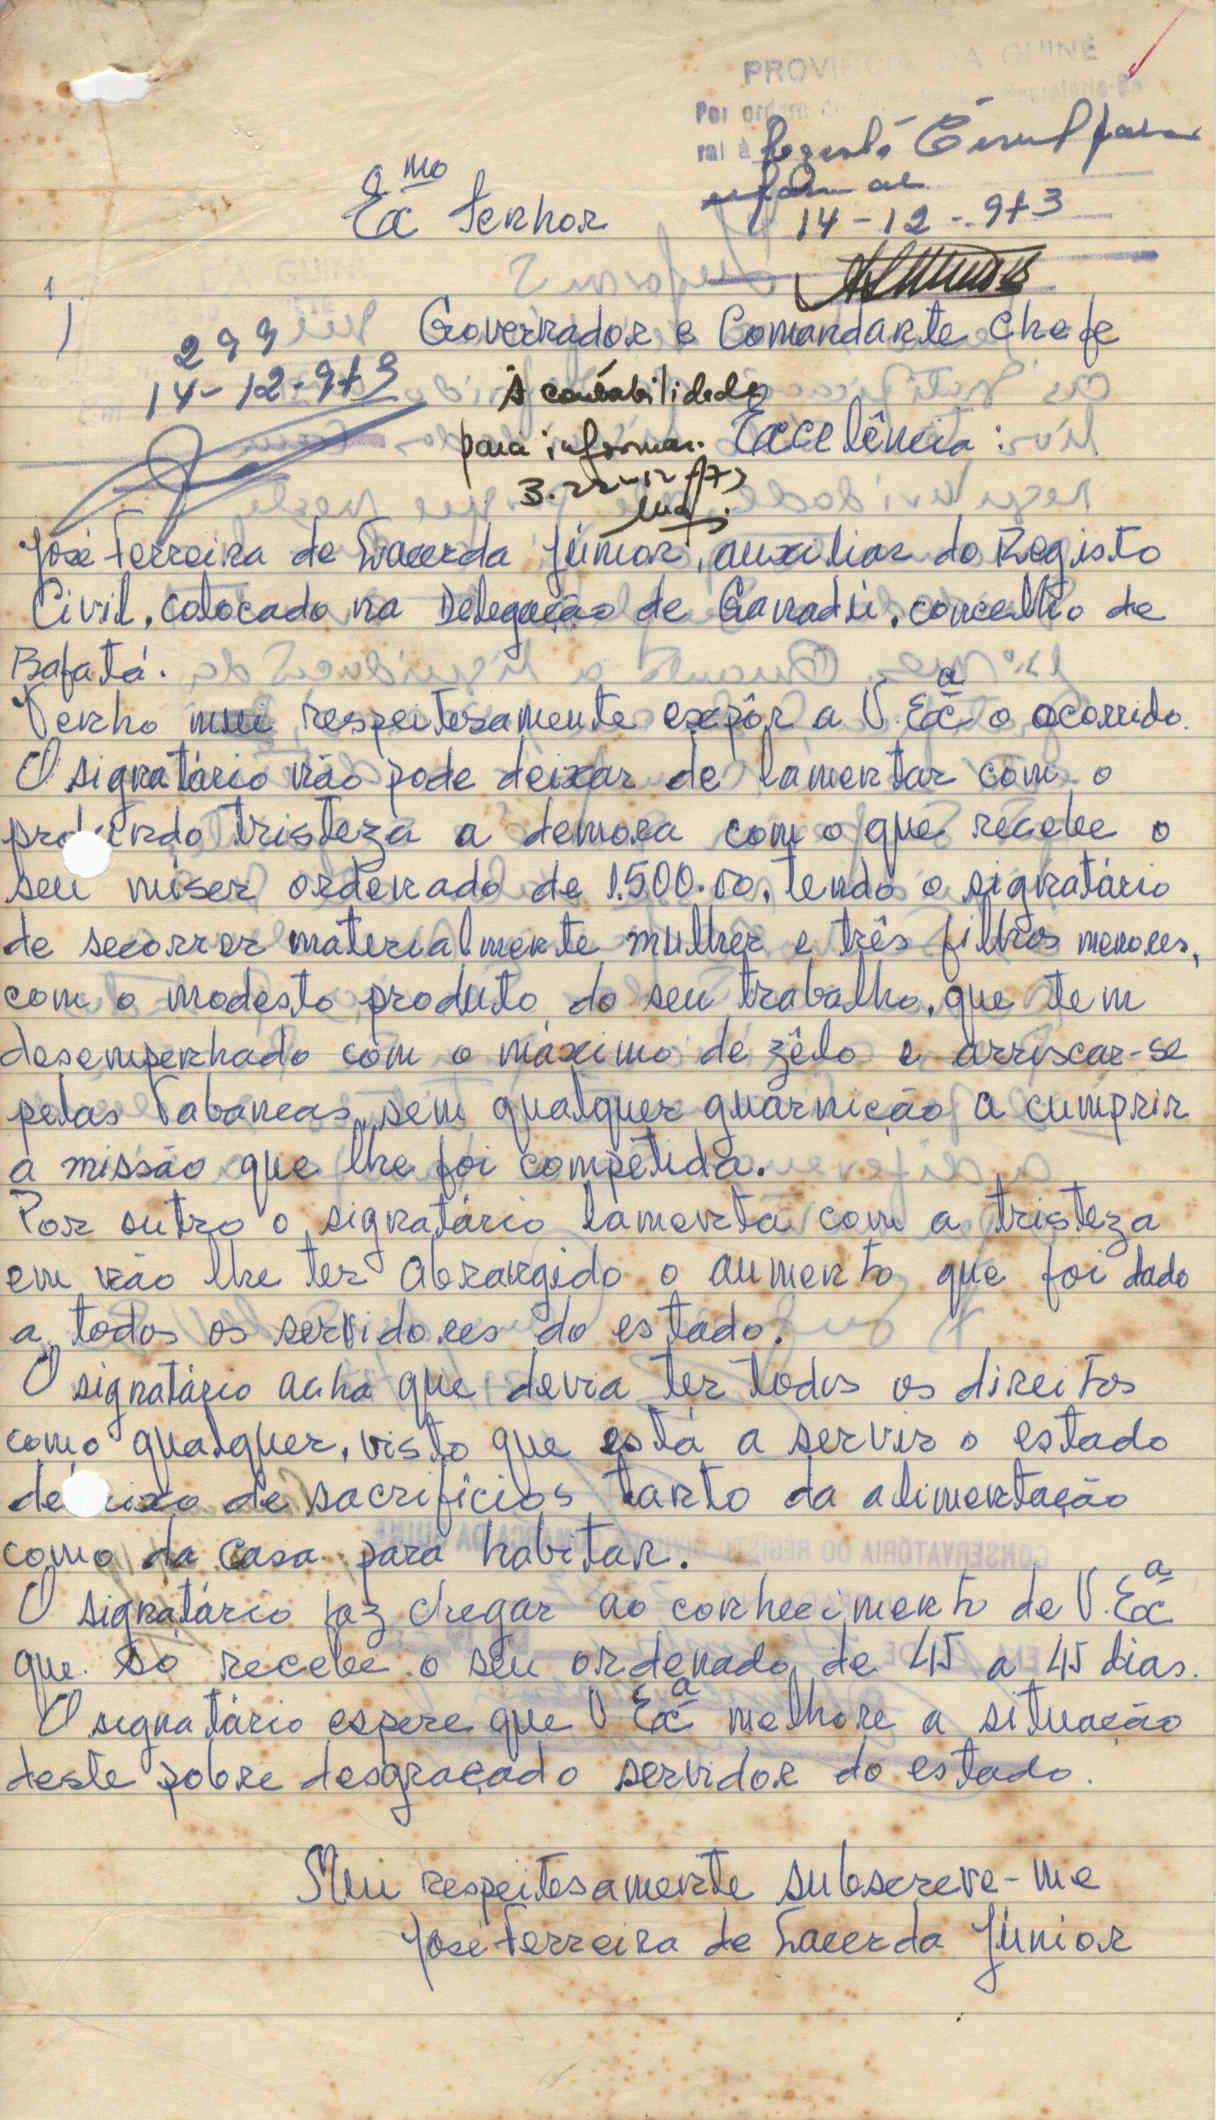 PROVINCIA DA GUINÉ
Por ordem
ral à Registo Civil para
informar
14-12-973
Exmo Senhor
Governador e Comandante chefe
299
14-12-973
À contabilidade
para informar.
Excelência:
José Ferreira de Lacerda Júnior, auxiliar do Registo
Civil, colocado na Delegação de Ganadú, concelho de
Bafatá.
Venho mui respeitosamente expôr a V. Exª o ocorrido.
O signatário não pode deixar de lamentar com o
tristeza a demora com o que recebe o
seu miser ordenado de 1.500.00, tendo o signatário
de socorrer materialmente mulher e três filhos menores,
com o modesto produto do seu trabalho, que tem
desempenhado com o máximo de zêlo e arriscar-se
pelas Tabancas, sem qualquer guarnição a cumprir
a missão que lhe foi competida.
Por outro o signatário lamenta com a tristeza
em não lhe ter abrangido o aumento que foi dado
a todos os servidores do estado.
O signatário acha que devia ter todos os direitos
como qualquer, visto que está a servir o estado
de sacrifícios tanto da alimentação
como da casa para habitar.
O signatário faz chegar ao conhecimento de V. Exª
que só recebe o seu ordenado de 45 a 45 dias.
O signatário espere que V Exª melhore a situação
deste pobre desgraçado servidor do estado.
Mui respeitosamente subscreve-me
José Ferreira de Lacerda Júnior